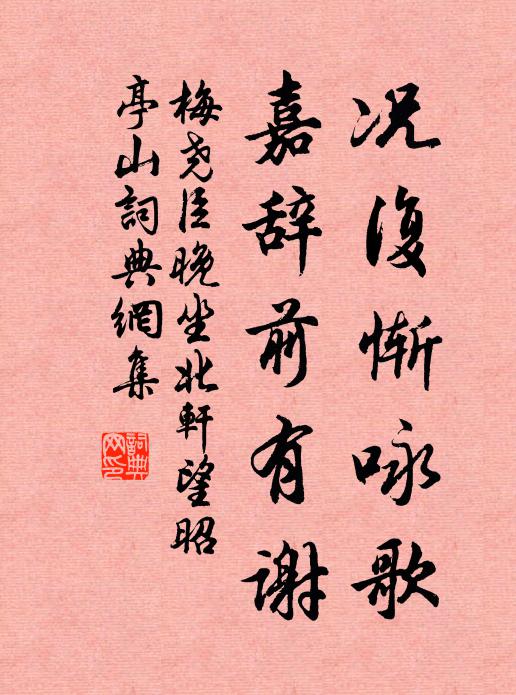 况复惭咏歌
嘉辞前有谢
梅尧臣晚坐北軒望昭
亭山詞典網集
詞典
网印